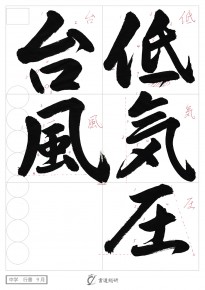 低気圧
台風
低
気
圧
台
風
中学 行書 9月
書道総研